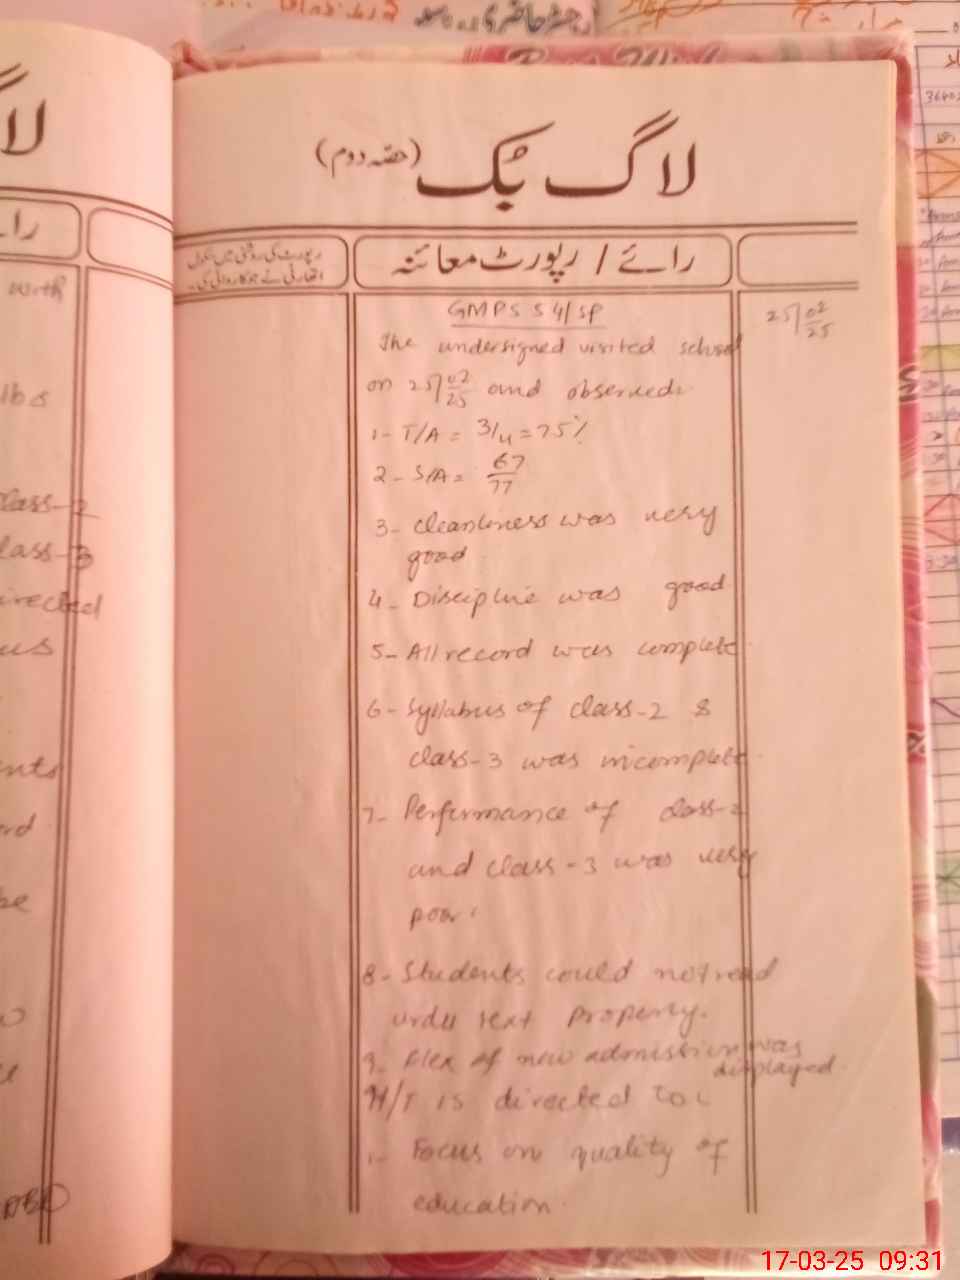 لاگ بک (حصہ دوم)
رپورٹ کی روشنی میں سکول
اتھارٹی نے جو کاروائی کی۔
رائے / رپورٹ معائنہ
GMPS 54/SP
25/02/25
The undersigned visited school
on 25/02/25 and observed:
1- T/A = 3/4 = 75%
2- S/A = 67/77
3- Cleanliness was very
good.
4- Discipline was good
5- All record was complete
6- Syllabus of class-2 &
class-3 was incomplete.
7- Performance of class-2
and class-3 was very
poor.
8- Students could not read
urdu text properly.
9. Flex of new admission was
displayed.
H/T is directed to:
1- Focus on quality of
education.
لا
رائے
with
class-2
class-3
directed
be
17-03-25 09:31